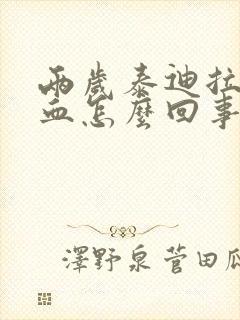 兩歲泰迪拉
血怎麼回事
澤野泉菅田